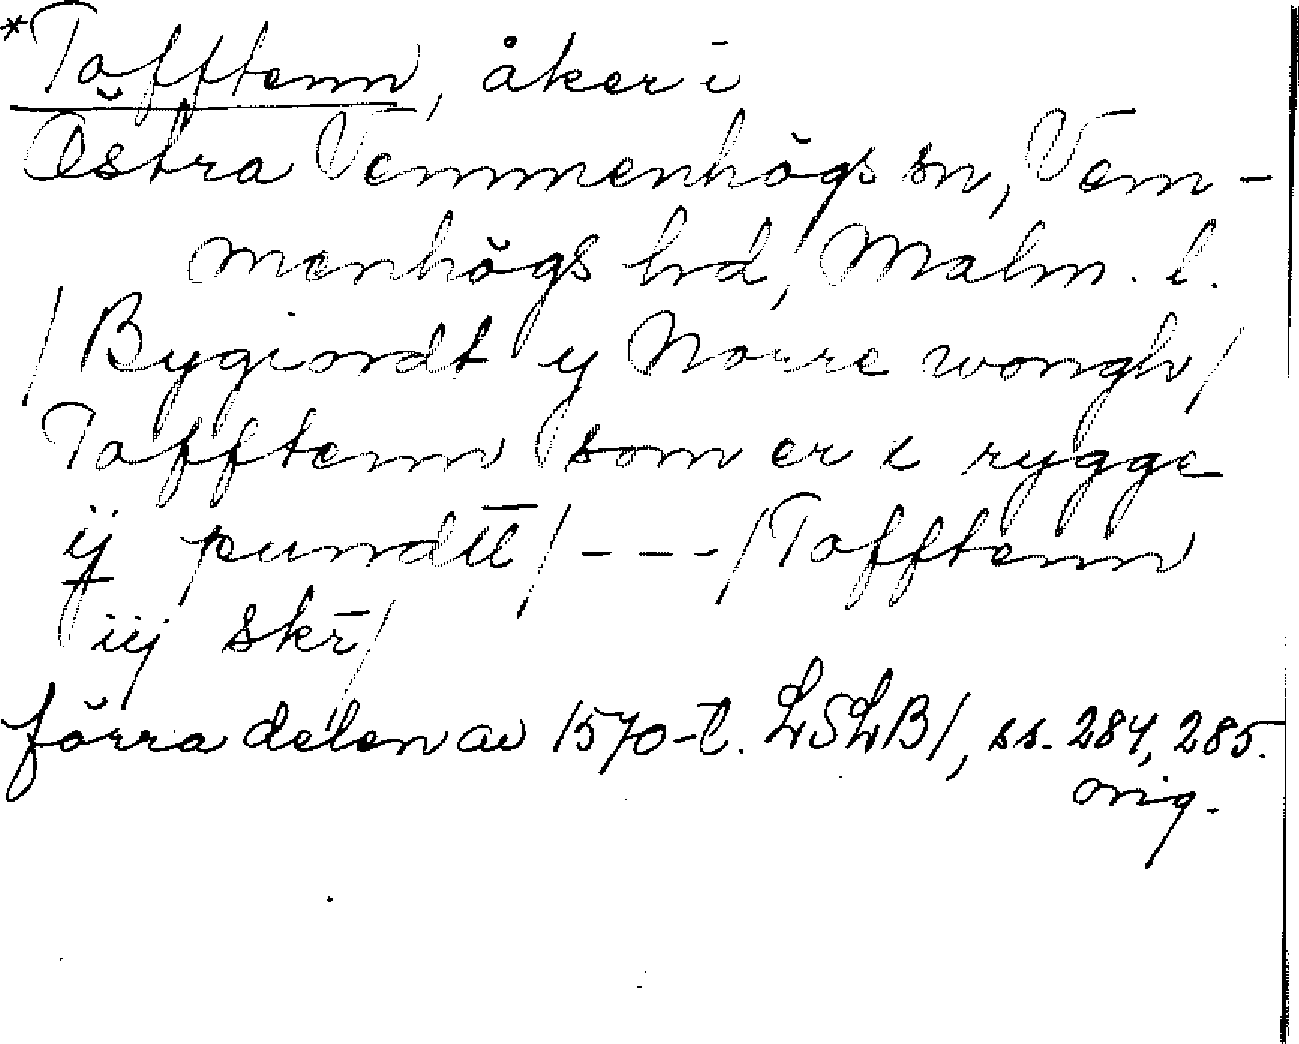 *Tafftenn, åker i
Östra Vemmenhögs sn, Vem-
menhögs hd, Malm. l.
/Bygiordt y Norre wongh/
Tafftenn som er i rygge
ij pundtt/---/Tafftenn
iij skr/
förra delen av 1570-t. LSLB1, ss. 284, 285.
orig.